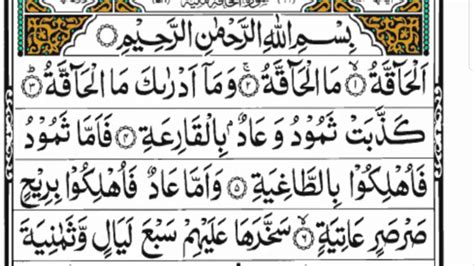 بِسْمِ اللهِ الرَّحْمٰنِ الرَّحِيْمِ
اَلْحَآقَّةُ ۙ﴿۱﴾ مَا الْحَآقَّةُ ۚ﴿۲﴾ وَمَاۤ اَدْرٰىكَ مَا الْحَآقَّةُ ؕ﴿۳﴾
كَذَّبَتْ ثَمُوْدُ وَعَادٌۢ بِالْقَارِعَةِ ﴿۴﴾ فَاَمَّا ثَمُوْدُ
فَاُهْلِكُوْا بِالطَّاغِيَةِ ﴿۵﴾ وَاَمَّا عَادٌ فَاُهْلِكُوْا بِرِيْحٍ
صَرْصَرٍ عَاتِيَةٍ ۙ﴿۶﴾ سَخَّرَهَا عَلَيْهِمْ سَبْعَ لَيَالٍ وَّثَمٰنِيَةَ